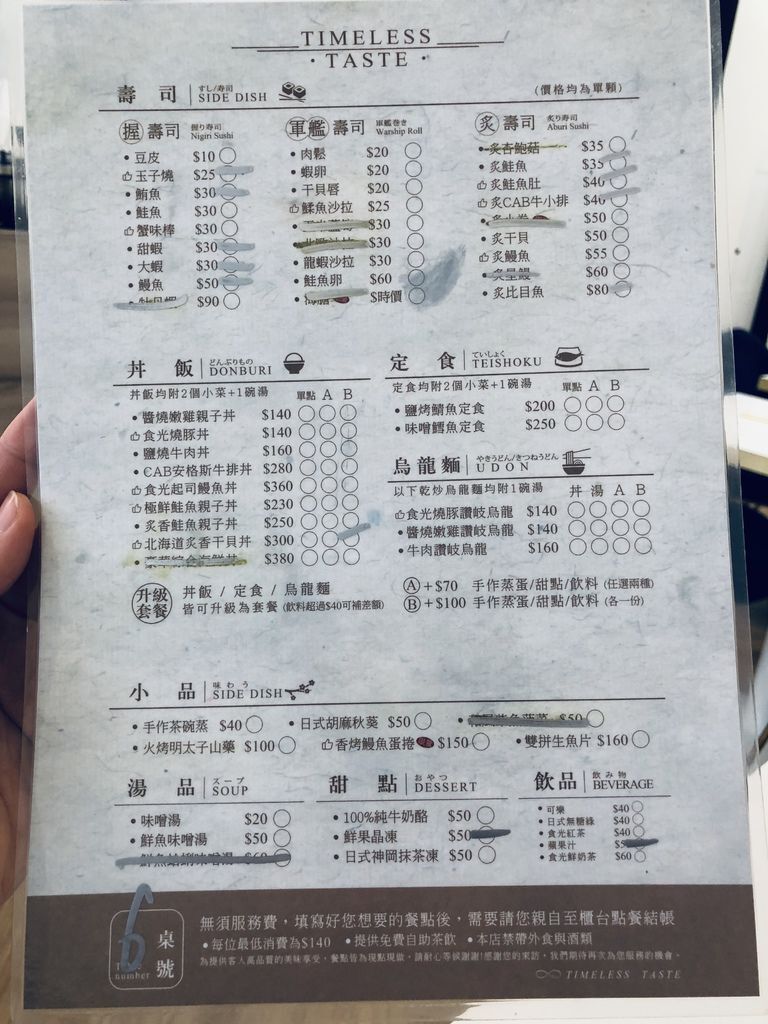 TIMELESS
· TASTE ·
壽司 すし/寿司 SIDE DISH (價格均為單顆)
握壽司 握り寿司 Nigiri Sushi
• 豆皮 $10
玉子燒 $25
• 鮪魚 $30
• 鮭魚 $30
蟹味棒 $30
• 甜蝦 $30
• 大蝦 $30
• 鰻魚 $50
$90
軍艦壽司 軍艦巻き Warship Roll
• 肉鬆 $20
• 蝦卵 $20
• 干貝唇 $20
鰇魚沙拉 $25
$30
$30
• 龍蝦沙拉 $30
• 鮭魚卵 $60
• 海膽 $時價
炙壽司 炙り寿司 Aburi Sushi
• 炙杏鮑菇 $35
• 炙鮭魚 $35
炙鮭魚肚 $40
炙CAB牛小排 $40
$50
• 炙干貝 $50
炙鰻魚 $55
• 炙星鰻 $60
• 炙比目魚 $80
丼飯 どんぶりもの DONBURI
丼飯均附2個小菜+1碗湯 單點 A B
• 醬燒嫩雞親子丼 $140
食光燒豚丼 $140
• 鹽燒牛肉丼 $160
• CAB安格斯牛排丼 $280
食光起司鰻魚丼 $360
極鮮鮭魚親子丼 $230
• 炙香鮭魚親子丼 $250
北海道炙香干貝丼 $300
• 豪華綜合海鮮丼 $380
定食 ていしょく TEISHOKU
定食均附2個小菜+1碗湯 單點 A B
• 鹽烤鯖魚定食 $200
• 味噌鱈魚定食 $250
烏龍麵 やきうどん/きつねうどん UDON
以下乾炒烏龍麵均附1碗湯 丼 湯 A B
食光燒豚讚岐烏龍 $140
• 醬燒嫩雞讚岐烏龍 $140
• 牛肉讚岐烏龍 $160
升級套餐 丼飯 / 定食 / 烏龍麵
皆可升級為套餐 (飲料超過$40可補差額)
Ⓐ+$70 手作蒸蛋/甜點/飲料 (任選兩種)
Ⓑ+$100 手作蒸蛋/甜點/飲料 (各一份)
小品 味わう SIDE DISH
• 手作茶碗蒸 $40 • 日式胡麻秋葵 $50 $50
• 火烤明太子山藥 $100 香烤鰻魚蛋捲 $150 • 雙拼生魚片 $160
湯品 スープ SOUP
• 味噌湯 $20
• 鮮魚味噌湯 $50
• 鮮魚蛤蜊味噌湯 $60
甜點 おやつ DESSERT
• 100%純牛奶酪 $50
• 鮮果晶凍 $50
• 日式神岡抹茶凍 $50
飲品 飲み物 BEVERAGE
• 可樂 $40
• 日式無糖綠 $40
• 食光紅茶 $40
• 蘋果汁
• 食光鮮奶茶 $60
6
桌號
number
無須服務費,填寫好您想要的餐點後,需要請您親自至櫃台點餐結帳
• 每位最低消費為$140 • 提供免費自助茶飲 • 本店禁帶外食與酒類
為提供客人高品質的美味享受,餐點皆為現點現做,請耐心等候謝謝!感謝您的來訪,我們期待再次為您服務的機會。
TIMELESS TASTE